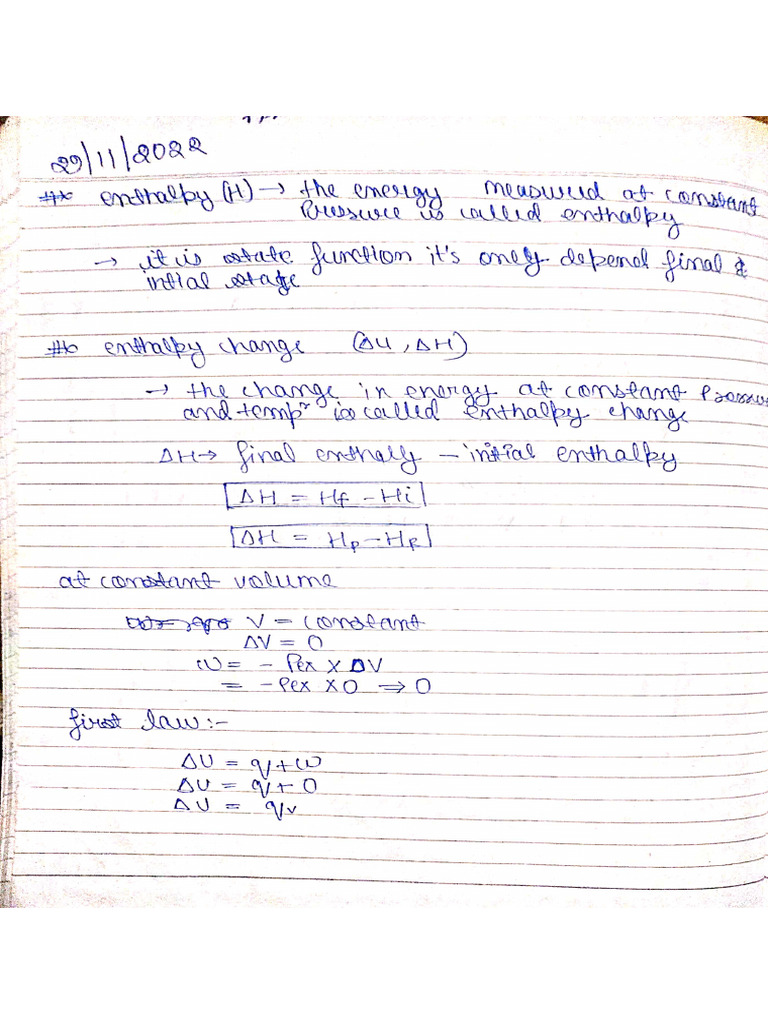 29/11/2022
## enthalpy (H) → the energy measured at constant
Pressure is called enthalpy
→ it is state function it's only depend final &
intial statge
## enthalpy change (ΔU, ΔH)
→ the change in energy at constant Pressure
and tempr is called enthalpy change
ΔH → final enthaly - initial enthalpy
ΔH = Hf - Hi
ΔH = Hp - HR
at constant volume
V = constant
ΔV = 0
W = - Pex X ΔV
= - Pex X 0 → 0
first law :-
ΔU = q + W
ΔU = q + 0
ΔU = qv